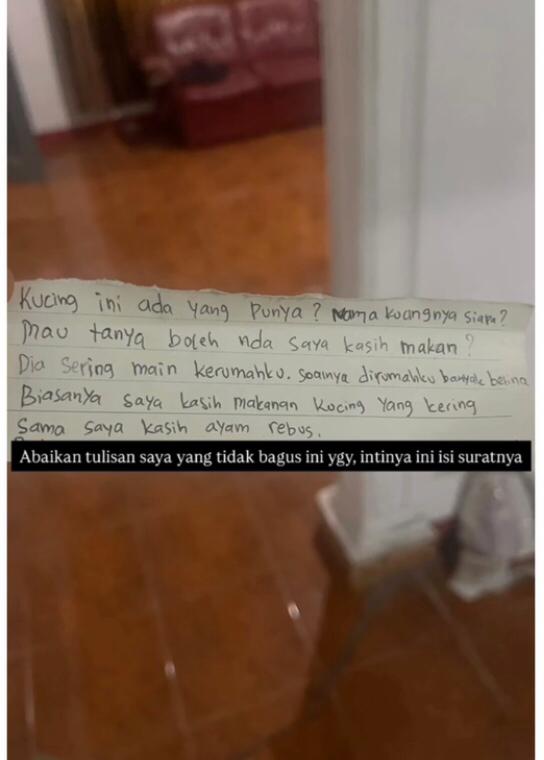 Kucing ini ada yang punya? Nama kuangnya siapa?
Mau tanya boleh nda saya kasih makan?
Dia sering main kerumahku. soalnya dirumahku banyak betina
Biasanya saya kasih makanan kucing yang kering
Sama saya kasih ayam rebus.
Abaikan tulisan saya yang tidak bagus ini ygy, intinya ini isi suratnya